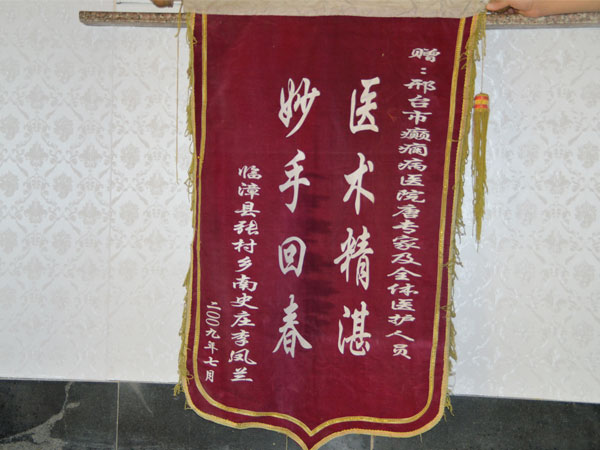 赠：邢台市癫痫病医院唐专家及全体医护人员
医术精湛
妙手回春
临漳县张村乡南史庄李凤兰
二〇〇九年七月